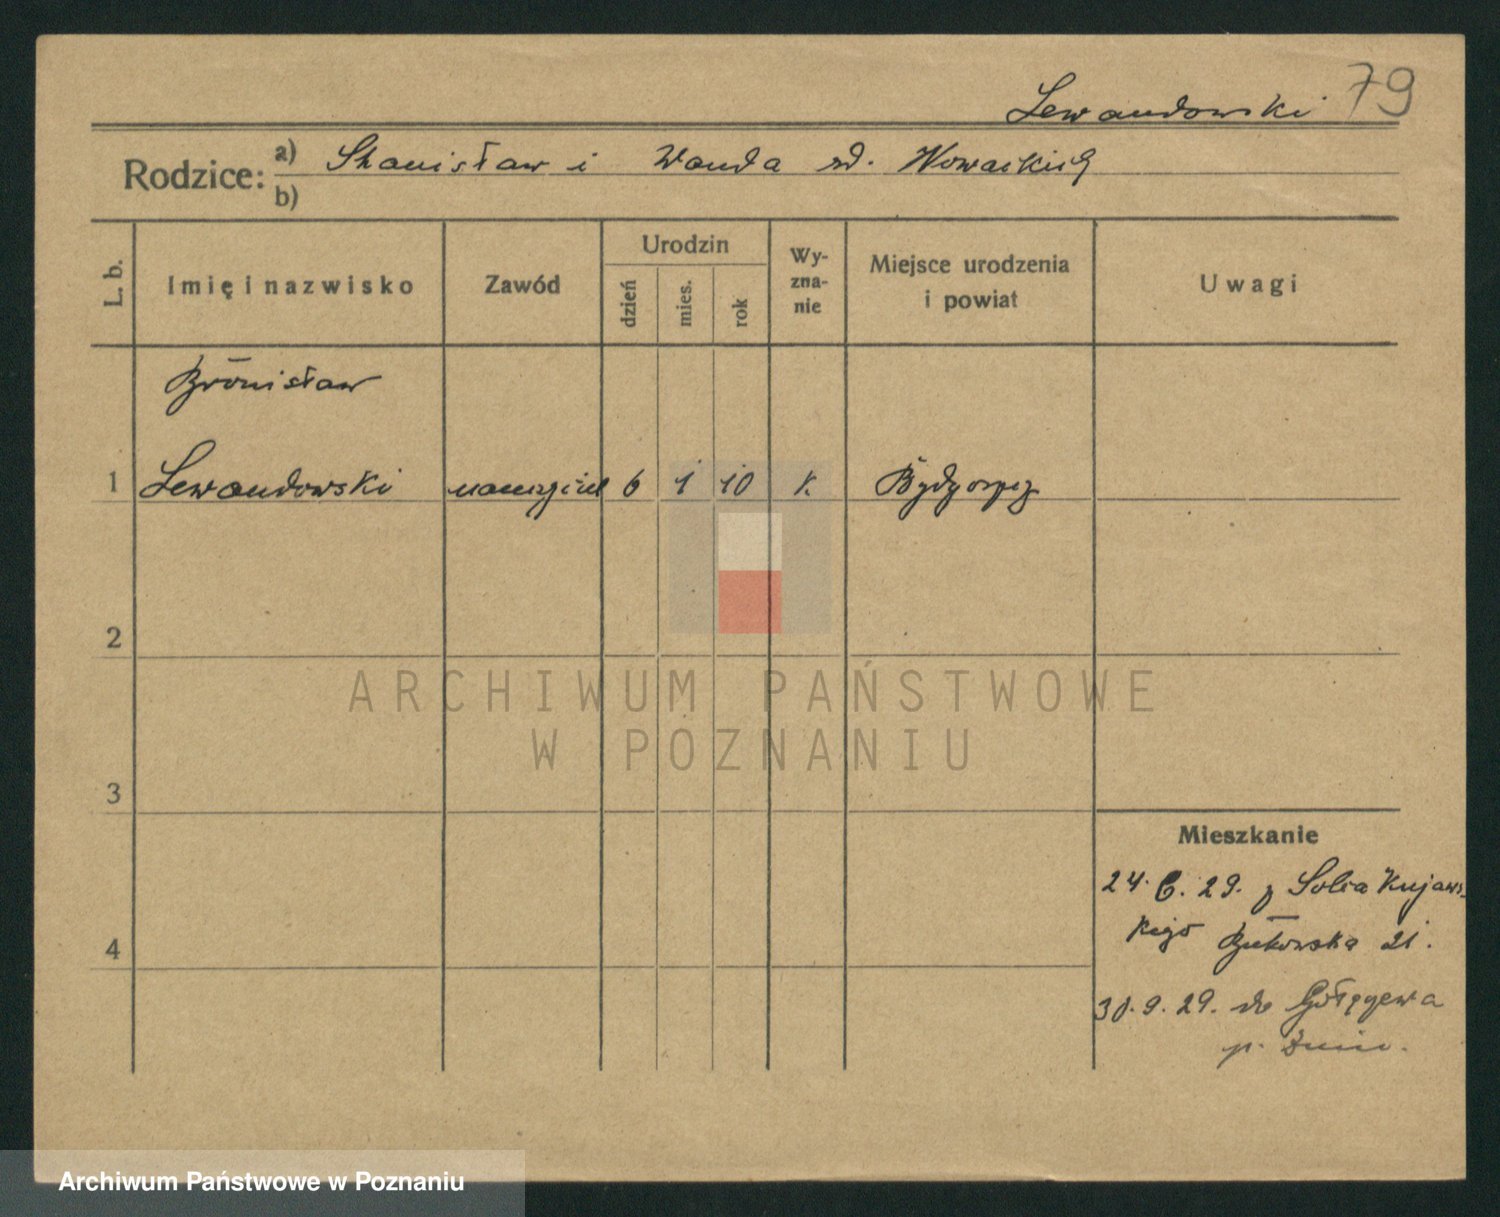 Lewandowski 79
Rodzice: a) Stanisław i Wanda zd. Nowackich
b)
L. b.
Imię i nazwisko
Zawód
Urodzin
dzień
mies.
rok
Wy-
zna-
nie
Miejsce urodzenia
i powiat
Uwagi
Bronisław
1 Lewandowski nauczyciel 6 1 10 k. Bydgoszcz
2
3
4
Mieszkanie
24. 6. 29. z Solca Kujaws-
kiego Bukowska 21.
30. 9. 29. do
p. Żnin.
ARCHIWUM PAŃSTWOWE
W POZNANIU
Archiwum Państwowe w Poznaniu